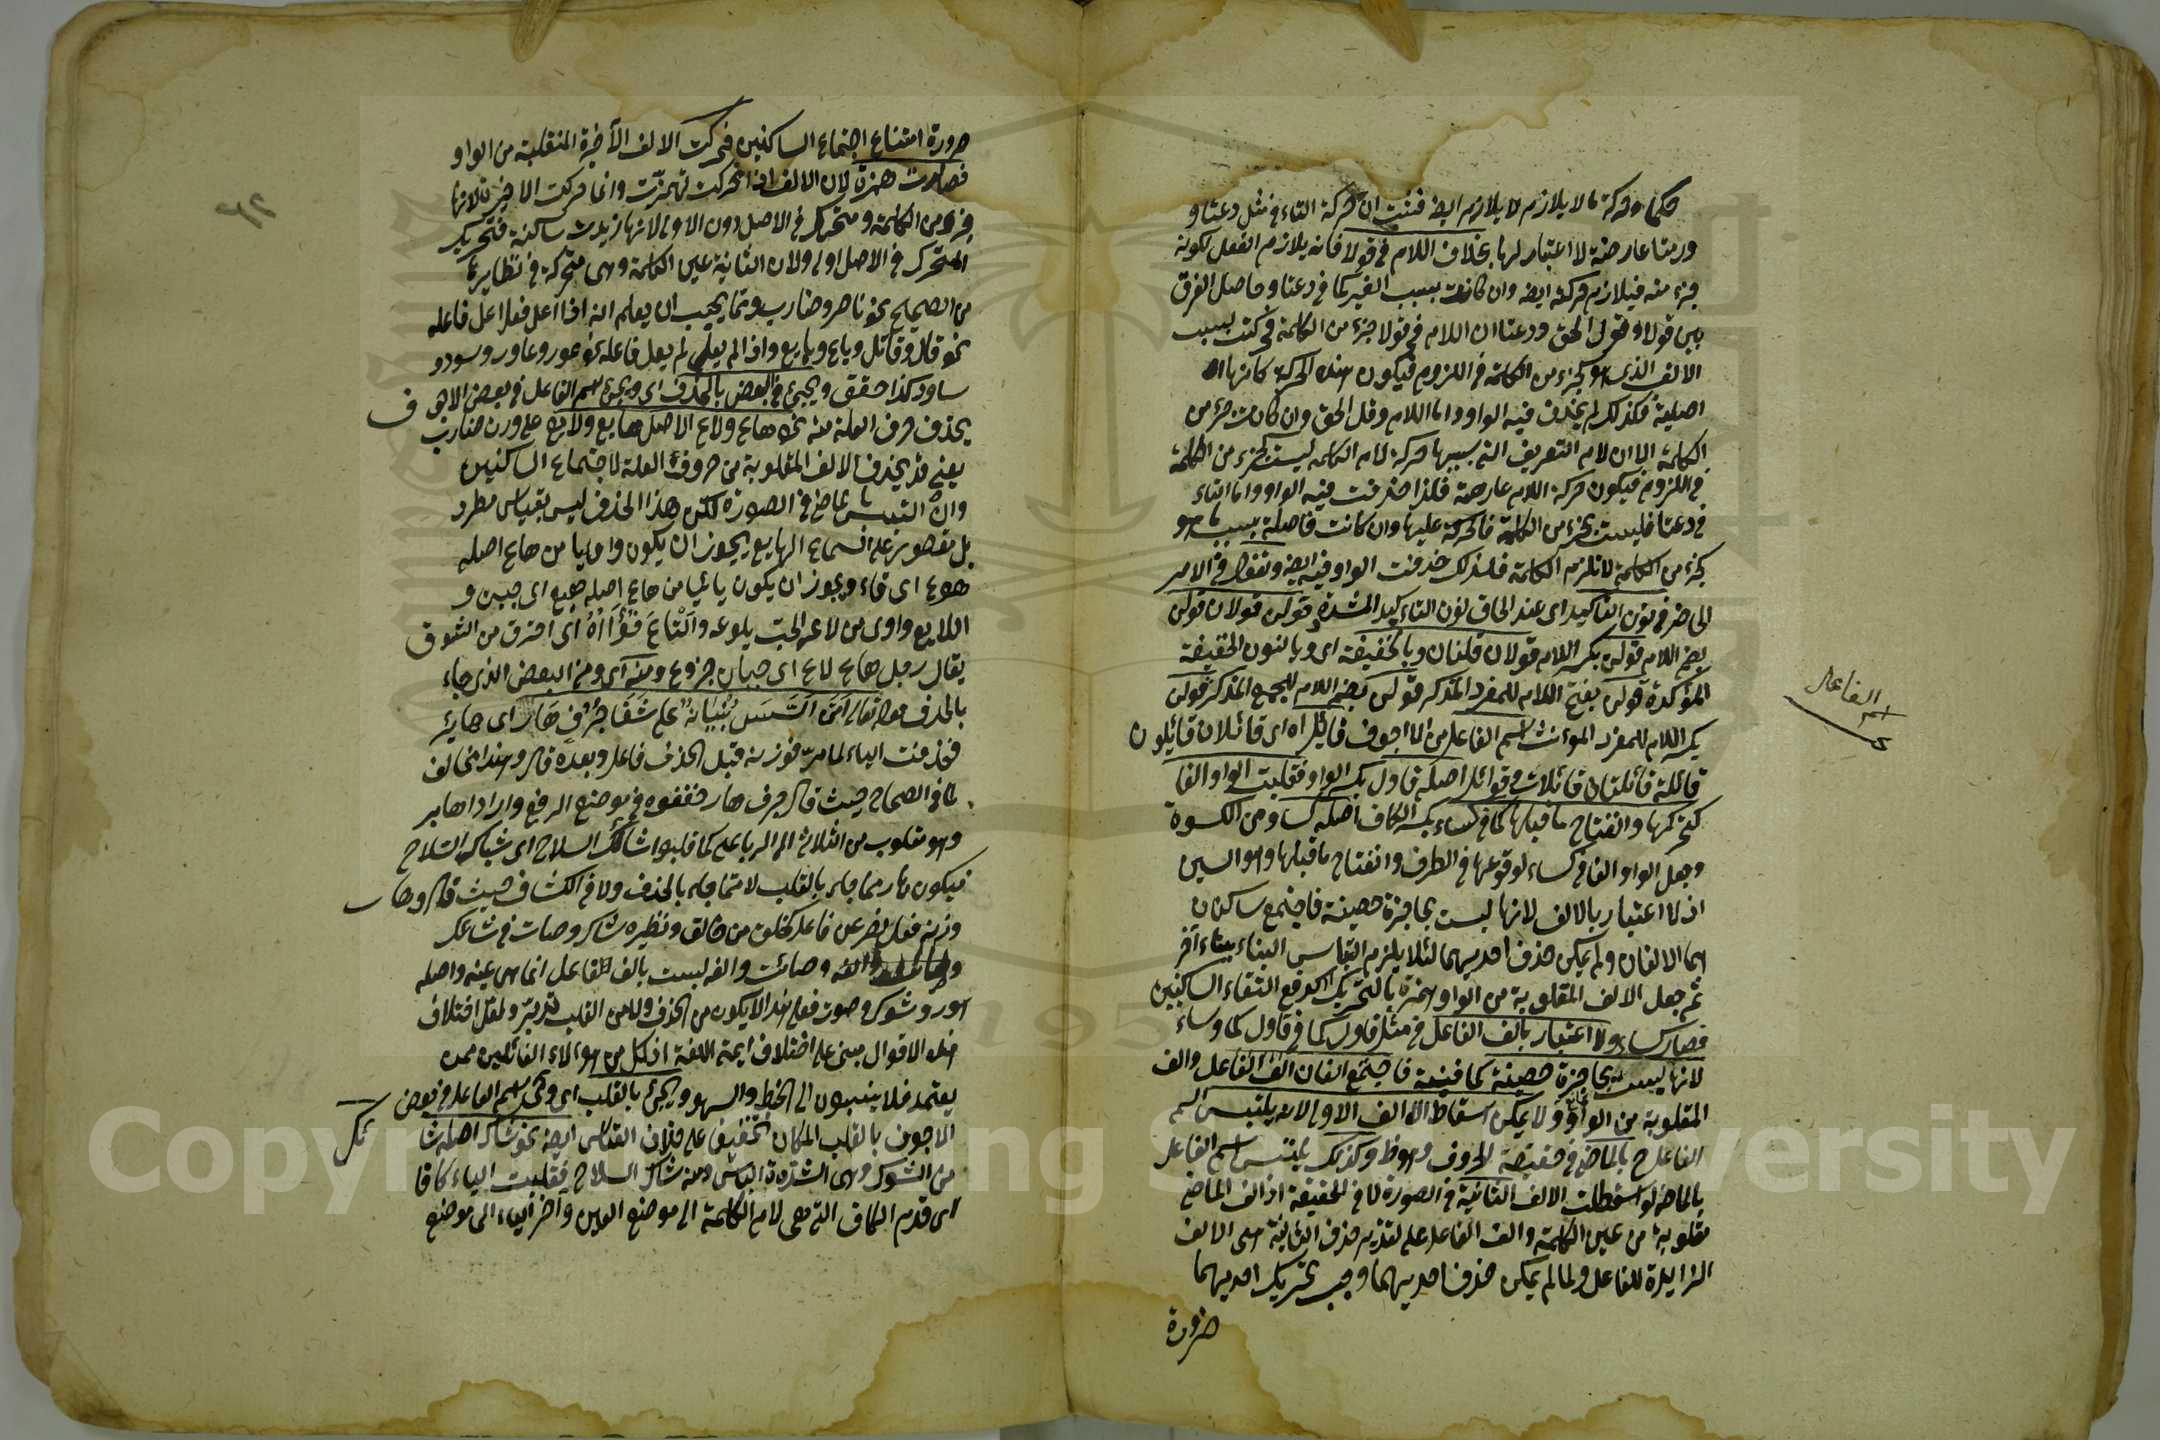 حكما وحركة ما لا يلازم لا يلازم ايضا فثبت ان حركة التاء في مثل دعتا و
ورمتا عارضة لا اعتبار لها بخلاف اللام في قولا فانه يلازم الفعل لكونه
جزء منه فيلازم حركته ايضا وان كانت بسبب الغير كما في دعتا وحاصل الفرق
بين قولا وقول الحق ودعتا ان اللام في قولا جزء من الكلمة حركت بسبب
الالف الذى هو كجزء من الكلمة في اللزوم فيكون هذه الحركة كانها
اصلية فكذلك لم يحذف فيه الواو واما اللام وقل الحق وان كانت جزء من
الكلمة الا ان لام التعريف التي بسببها حركة لام الكلمة ليست كجزء من الكلمة
في اللزوم فيكون حركة اللام عارضة فلذا حذفت فيه الواو واما التاء
في دعتا فليست بجزء من الكلمة فالحركة عليها وان كانت حاصلة بسبب ما هو
كجزء من الكلمة لا تلزم الكلمة فلذلك حذفت الواو فيه ايضا وتقول في الامر
الحاضر في نون التأكيد اى عند الحاق نون التاءكيد المشددة قولن قولان قولن
بضم اللام قولن بكسر اللام قولان قلنان وبالخفيفة اى وبالنون الخفيفة
المؤكدة قولن بفتح اللام للمفرد المذكر قولن بضم اللام للجمع المذكر قولن
بكسر اللام للمفرد المؤنث اسم الفاعل من الاجوف قائل اه اى قائلان قائلون
قائلة قائلتان قائلات وقوائل اصله قاول بكسر الواو فقلبت الواو الفا
لتحركها وانفتاح ما قبلها كما في كساء بكسر الكاف اصله كساو من الكسوة
وجعل الواو الفا في كساء لوقوعها في الطرف وانفتاح ما قبلها وهو السين
اذ لا اعتبار بالالف لانها ليست بحاجزة حصينة فاجتمع ساكنان
هما الالفان ولم يمكن حذف احديهما لئلا يلزم التباس البناء ببناء آخر
ثم جعل الالف المقلوبة من الواو همزة بالتحريك لدفع التقاء الساكنين
فصار كساء ولا اعتبار بالف الفاعل في مثل قاول كما في قاول كما وساء
لانها ليست بحاجزة حصينة كما فيه فاجتمع الفان الف الفاعل والف
المقلوبة من الواو ولا يمكن اسقاط الالف الاولى لانه يلتبس اسم
الفاعل ح بالماضي في حقيقة الحروف وهو ظ وكذلك يلتبس اسم الفاعل
بالماضي لو اسقطت الالف الثانية في الصورة لا في الحقيقة اذ الف الماضي
مقلوبة من عين الكلمة والف الفاعل على تقدير حذف الثانية هى الالف
الزايدة للفاعل ولما لم يمكن حذف احديهما وجب تحريك احديهما
ضرورة
اسم الفاعل
ضرورة امتناع اجتماع الساكنين فحركت الالف الأخيرة المنقلبة من الواو
فصارت همزة لان الالف اذا تحركت تهمزت وانما حركت الاخيرة لانها
جزء من الكلمة ومتحرك في الاصل دون الاولى لانها زيدت ساكنة فتحريك
المتحرك في الاصل اولى ولان الثانية عين الكلمة وهى متحركة في نظايرها
من الصحيح نحو ناصر وضارب ومما يجب ان يعلم انه اذا اعل فعل اعل فاعله
نحو قال وقائل وباع وبايع واذا لم يعل لم يعل فاعله نحو عور وعاور وسود و
ساود كذا حقق ويجئ في البعض بالحذف اى ويجئ اسم الفاعل في بعض الاجوف
بحذف حرف العلة منه نحو هاع ولاع الاصل هايع ولايع على وزن ضارب
يعنى قد يحذف الالف المقلوبة من حروف العلة لاجتماع الساكنين
وان التبس بالماضي في الصورة لكن هذا الحذف ليس بقياس مطرد
بل مقصور على السماع الهايع يجوز ان يكون واويا من هاع اصله
هوع اى قاء ويجوز ان يكون يائيا من هاع اصله هيع اى جبن و
اللايع واوى من لاعه الحب يلوعه والتاع فؤاده اى احترق من الشوق
يقال رجل هاع لاع اى جبان جزوع ومنه اى ومن البعض الذى جاء
بالحذف قوله تعالى امن اسس بنيانه على شفا جرف هار اى هاير
فحذفت الياء لما مر فوزنه قبل الحذف فاعل وبعده فال وهذا مخالف
لما في الصحاح حيث قال جرف هار خففوه في موضع الرفع وارادوا هاير
وهو مقلوب من الثلاثى الى الرباعى كما قلبوا شائك السلاح الى شاكى السلاح
فيكون هار مما جاء بالقلب لا مما جاء بالحذف ولا في الكشاف حيث قال وهار
وزنه فعل قصر عن فاعل كخلف من خالف ونظيره شاك وصات في شائك
وصائت والفه ليست بالف الفاعل انما هى عينه واصله
هور وشوك وصوت فعلى هذا لا يكون من الحذف ولا من القلب فتدبر ولعل اختلاف
هذه الاقوال مبنى على اختلاف ايمة اللغة اذ كل من هؤلاء القائلين ممن
يعتمد فلا ينسبون الى الخطأ والسهو ويجئ بالقلب اى وتجئ اسم الفاعل في بعض
الاجوف بالقلب المكان تخفيفا على خلاف القياس ايضا نحو شاك اصله شا
من الشوك وهى الشدة والبأس ومنه شاك السلاح فقلبت الياء كما قا
اى قدم الكاف التي هى لام الكلمة الى موضع العين وأخر الياء الى موضع
Copyright © King Saud University
1957